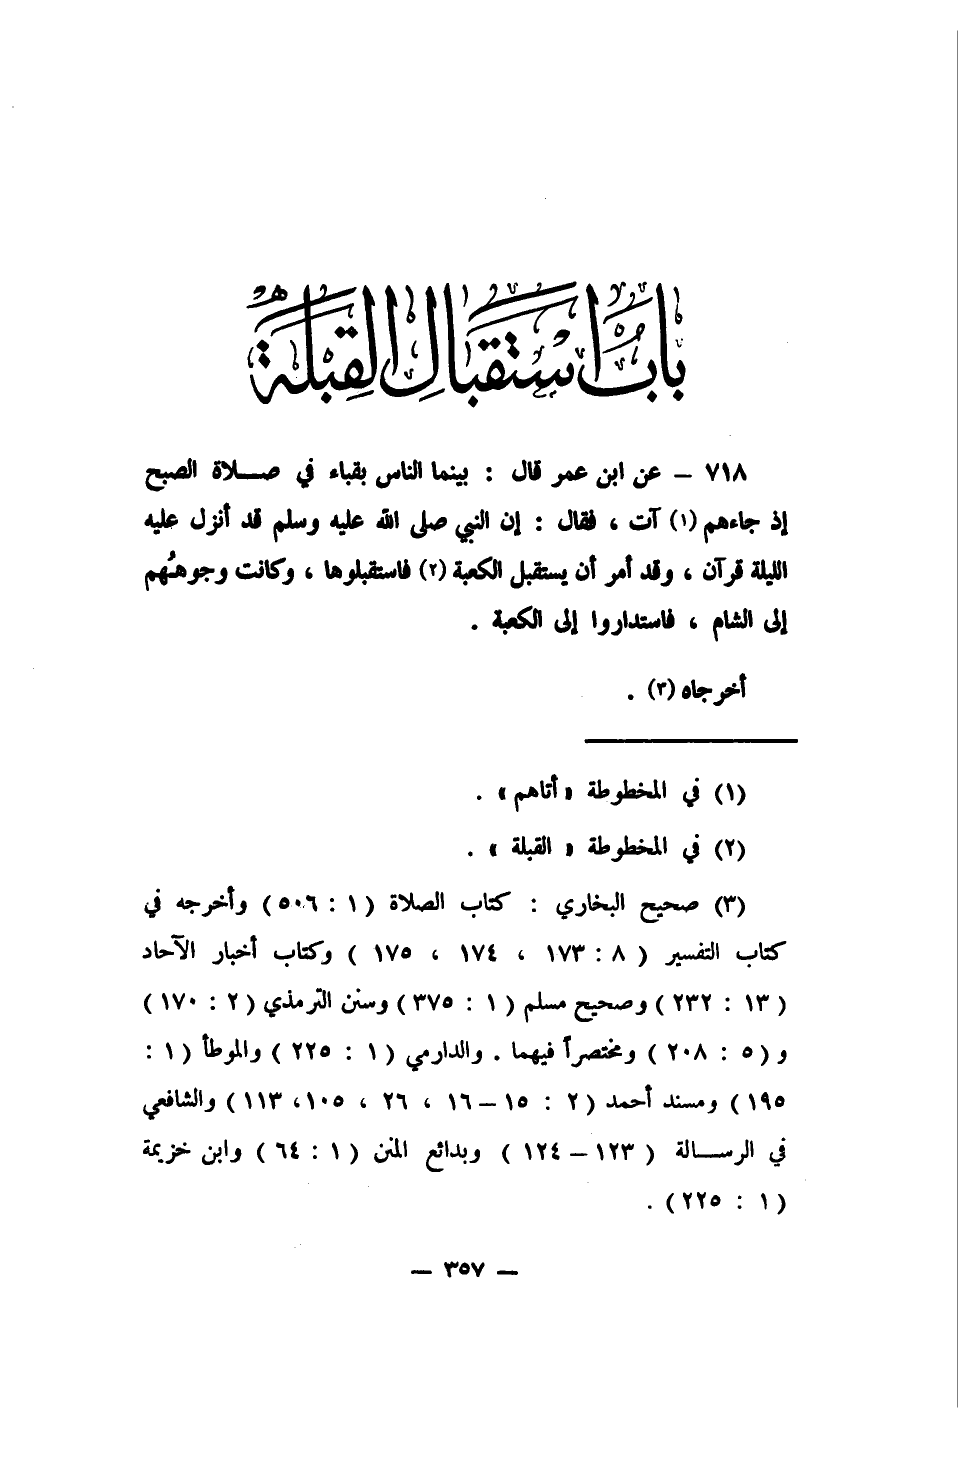 باب استقبال القبلة
٧١٨ – عن ابن عمر قال : بينما الناس بقباء في صلاة الصبح
إذ جاءهم (١) آت ، فقال : إن النبي صلى الله عليه وسلم قد أنزل عليه
الليلة قرآن ، وقد أمر أن يستقبل الكعبة (٢) فاستقبلوها ، وكانت وجوهُهم
إلى الشام ، فاستداروا إلى الكعبة .
أخرجاه (٣) .
(١) في المخطوطة « أتاهم » .
(٢) في المخطوطة « القبلة » .
(٣) صحيح البخاري : كتاب الصلاة ( ١ : ٥٠٦ ) وأخرجه في
كتاب التفسير ( ٨ : ١٧٣ ، ١٧٤ ، ١٧٥ ) وكتاب أخبار الآحاد
( ١٣ : ٢٣٢ ) وصحيح مسلم ( ١ : ٣٧٥ ) وسنن الترمذي ( ٢ : ١٧٠ )
و ( ٥ : ٢٠٨ ) ومختصراً فيهما . والدارمي ( ١ : ٢٢٥ ) والموطأ ( ١ :
١٩٥ ) ومسند أحمد ( ٢ : ١٥ – ١٦ ، ٢٦ ، ١٠٥، ١١٣ ) والشافعي
في الرسالة ( ١٢٣ – ١٢٤ ) وبدائع المنن ( ١ : ٦٤ ) وابن خزيمة
( ١ : ٢٢٥ ) .
– ٣٥٧ –